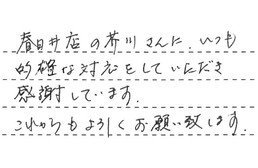 春日井店の芥川さんに、いつも
的確な対応をしていただき
感謝しています。
これからもよろしくお願い致します。